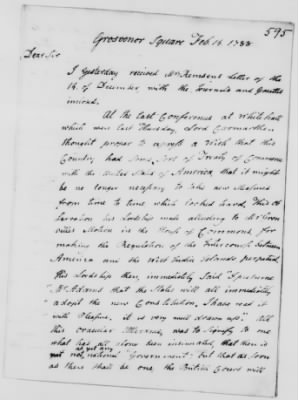 595
Grosvenor Square Feb. 16. 1788
Dear Sir
I Yesterday received Mr Remsens Letter of the
14. of December, with the Journals and Gazettes
inclosed.
At the last Conference at Whitehall
which was last Thursday, Lord Carmarthen
thought proper to express a Wish that this
Country, had some sort of Treaty of Commerce
with the United States of America, that it might
be no longer necessary to take new Measures
from time to time which looked hard, This Ob
servation his Lordship made alluding to Mr Gren
villes Motion in the House of Commons for
making the Regulation of the Intercourse between
America and the West India Islands perpetual.
His Lordship then, immediately said "I presume
"Mr Adams that the States will all immediately
"adopt the new Constitution. I have read it
with Pleasure, it is very well drawn up". All
this oracular Utterance, was to signify to me
what has all along been insinuated, that there is
not as yet any national Government; but that as soon
as there shall be one, the British Court will